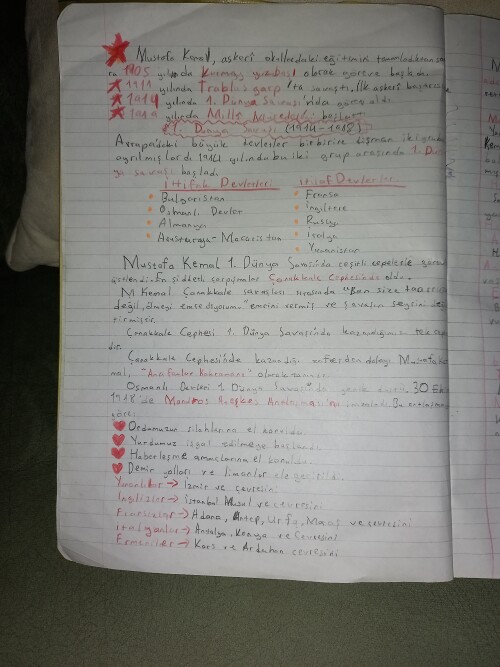 Mustafa Kemal, askeri okullardaki eğitimini tamamladıktan son
ra 1905 yılında Kurmay yüzbaşı olarak göreve başladı.
1911 yılında Trablusgarp'ta savaştı. İlk askeri başarısı
1914 yılında 1. Dünya Savaşı'nda görev aldı.
1919 yılında Milli Mücadeleyi başlattı
1. Dünya Savaşı (1914-1918)
Avrupa'daki büyük devletler birbirine düşman iki gruba
ayrılmışlardı 1914 yılında bu iki grup arasında 1. Dün
ya savaşı başladı
İttifak Devletleri
Bulgaristan
Osmanlı Devlet
Almanya
Avusturya-Macaristan
İtilaf Devletleri
Fransa
İngiltere
Rusya
İtalya
Yunanistan
Mustafa Kemal 1. Dünya Savaşı'nda çeşitli cephelerde görev
üstlendi. En şiddetli çarpışmalar Çanakkale Cephesi'nde oldu.
M Kemal Çanakkale savaşları sırasında "Ben size taarruzu
değil, ölmeyi emrediyorum." emrini vermiş ve savaşın seyrini değiş
tirmiştir.
Çanakkale Cephesi 1. Dünya Savaşı'nda kazandığımız tek cep
dir.
Çanakkale Cephesi'nde kazandığı dolayı Mustafa Ke
mal, "Anafartalar Kahramanı" olarak
Osmanlı Devleti 1. Dünya Savaşı'nda 30 Ek
1918'de Mondros Ateşkes Anlaşması'nı imzaladı Bu antlaşmaya
göre:
Ordumuzun silahlarına el konuldu.
Yurdumuz işgal edilmeye başlandı.
Haberleşme araçlarına el konuldu.
Demir yolları ve limanlar ele geçirildi.
Yunanlılar → İzmir ve çevresini
İngilizler → İstanbul Musul ve çevresini
Fransızlar → Adana, Antep, Urfa, Maraş ve çevresini
İtalyanlar → Antalya, Konya ve çevresini
Ermeniler → Kars ve Ardahan çevresini